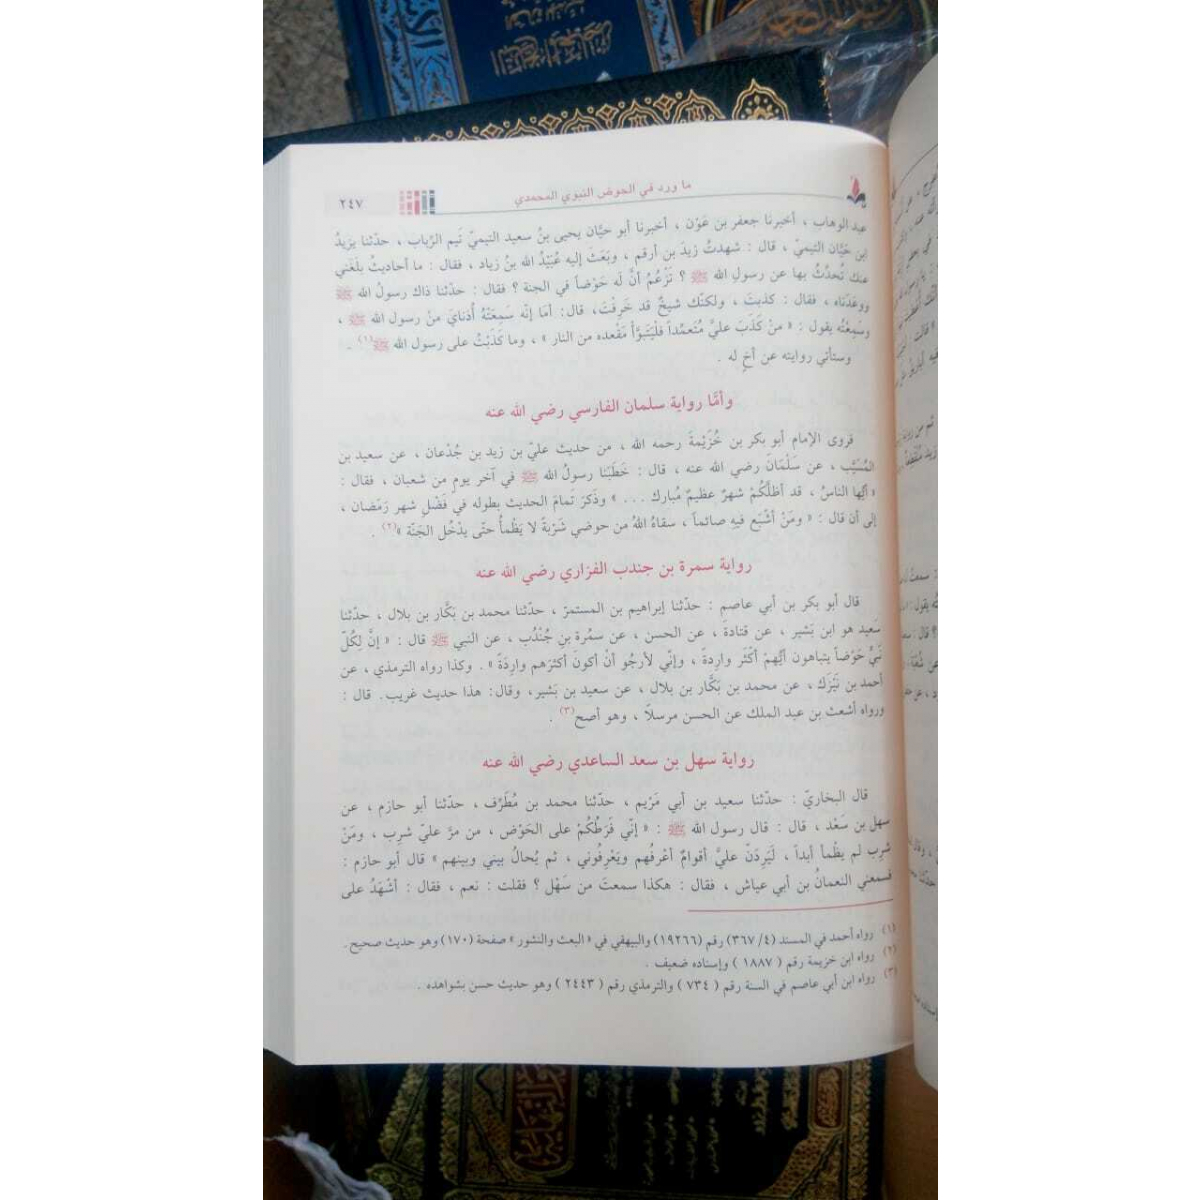 ما ورد في الحوض النبوي المحمدي
٢٤٧
عبد الوهاب ، أخبرنا جعفر بن عَوْن ، أخبرنا أبو حيَّان يحيى بنُ سعيد التيميّ تَيم الرِّباب ، حدّثنا يزيدُ
ابن حَيَّان التيميّ ، قال : شهدتُ زيدَ بن أرقم ، وبَعَثَ إليه عُبَيْدُ الله بنُ زياد ، فقال : ما أحاديثُ بلَغَني
عنك تُحدِّثُ بها عن رسولِ الله ﷺ ؟ تَزْعُمُ أنَّ لَه حَوْضاً في الجنة ؟ فقال : حدّثنا ذاك رسولُ الله ﷺ
ووعَدَناه ، فقال : كذبتَ ، ولكنّك شيخٌ قد خَرِفْتَ، قال: أمَا إنَّه سَمِعَتْهُ أُذنايَ منْ رسول الله ﷺ ،
وسَمِعْتُه يقول : « منْ كَذَبَ عليَّ مُتَعمِّداً فَلْيَتَبوَّأْ مَقْعَده من النار » ، وما كَذَبْتُ على رسول الله ﷺ(١) .
وستأتي روايته عن أخٍ له .
وأمَّا رواية سلمان الفارسي رضي الله عنه
فروى الإمام أبو بكر بن خُزَيْمةَ رحمه الله ، من حديث عليّ بن زيد بن جُدْعان ، عن سعيد بن
المُسَيَّب ، عن سَلْمَانَ رضي الله عنه ، قال : خَطَبَنا رسولُ الله ﷺ في آخر يومٍ من شعبان ، فقال :
« أيُّها الناسُ ، قد أظلَّكُمْ شهرٌ عظيمٌ مُبارك . . . » وذَكرَ تَمامَ الحديث بطوله في فَضْلِ شهر رَمَضان ،
إلى أن قال : « ومَنْ أشْبَع فيهِ صائماً ، سقاهُ اللهُ من حوضي شَرْبَةً لا يَظْمأُ حتّى يدْخُل الجَنَّة »(٢) .
رواية سمرة بن جندب الفزاري رضي الله عنه
قال أبو بكر بن أبي عاصم : حدّثنا إبراهيم بن المستمرّ ، حدّثنا محمد بن بَكَّار بن بلال ، حدّثنا
سَعيد هو ابن بَشير ، عن قتادة ، عن الحسن ، عن سمُرة بنِ جُنْدُب ، عن النبي ﷺ قال : « إنَّ لِكُلّ
نَبيٍّ حَوْضاً يتباهون أيُّهمْ أكثَر واردةً ، وإنّي لأرجُو أنْ أكونَ أكثرَهم وارِدَةً » . وكذا رواه الترمذي ، عن
أحمد بن نَيْزَك ، عن محمد بن بَكَّار بن بلال ، عن سعيد بن بَشير ، وقال: هذا حديث غريب. قال :
ورواه أشعث بن عبد الملك عن الحسن مرسلاً ، وهو أصح(٣) .
رواية سهل بن سعد الساعدي رضي الله عنه
قال البخاريّ : حدّثنا سعيد بن أبي مَرْيم ، حدّثنا محمد بن مُطَرِّف ، حدّثنا أبو حازم ، عن
سهل بن سَعْد ، قال : قال رسول الله ﷺ : « إنِّي فَرَطُكُمْ على الحَوْض ، من مرَّ عليّ شرِب ، ومَنْ
شرِب لم يظْمأ أبداً ، لَيَرِدَنّ عليَّ أقوامٌ أعْرفُهم ويَعْرِفُوني ، ثم يُحالُ بيني وبينهم » قال أبو حازم :
فسمعني النعمانُ بن أبي عياش ، فقال : هكذا سمعتَ من سَهْل ؟ فقلت : نعم ، فقال : أشْهَدُ على
(١) رواه أحمد في المسند (٤/ ٣٦٧) رقم (١٩٢٦٦) والبيهقي في « البعث والنشور » صفحة (١٧٠) وهو حديث صحيح .
(٢) رواه ابن خزيمة رقم ( ١٨٨٧ ) وإسناده ضعيف .
(٣) رواه ابن أبي عاصم في السنة رقم ( ٧٣٤ ) والترمذي رقم ( ٢٤٤٣ ) وهو حديث حسن بشواهده .